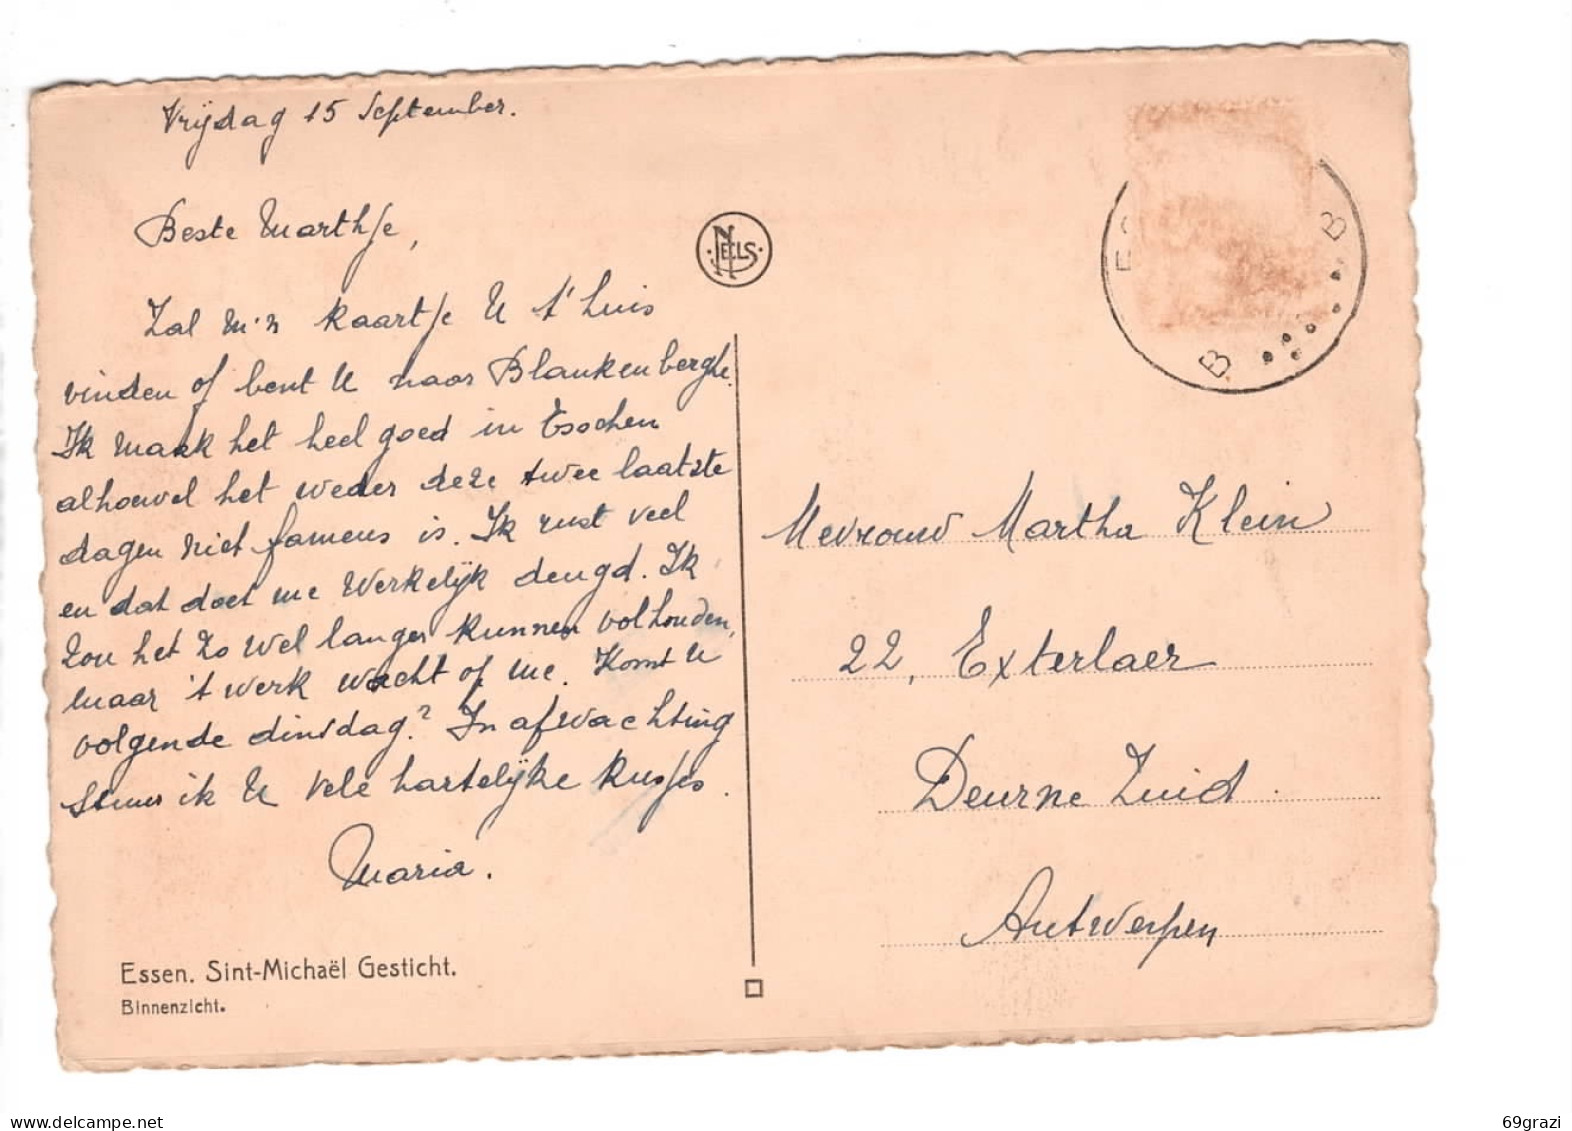 Vrijdag 15 September.
Beste Marthje,
Zal m'n kaartje U t'huis
vinden of bent U naar Blankenberghe.
Ik maak het heel goed in Esschen
alhoewel het weder deze twee laatste
dagen niet fameus is. Ik rust veel
en dat doet me werkelijk deugd. Ik
zou het zo wel langer kunnen volhouden,
maar 't werk wacht of me. Komt U
volgende dinsdag? In afwachting
stuur ik U vele hartelijke kusjes.
Maria.
Essen. Sint-Michaël Gesticht.
Binnenzicht.
NELS
B B
Mevrouw Martha Klein
22, Exterlaer
Deurne Zuid.
Antwerpen
delcampe.net
69grazi